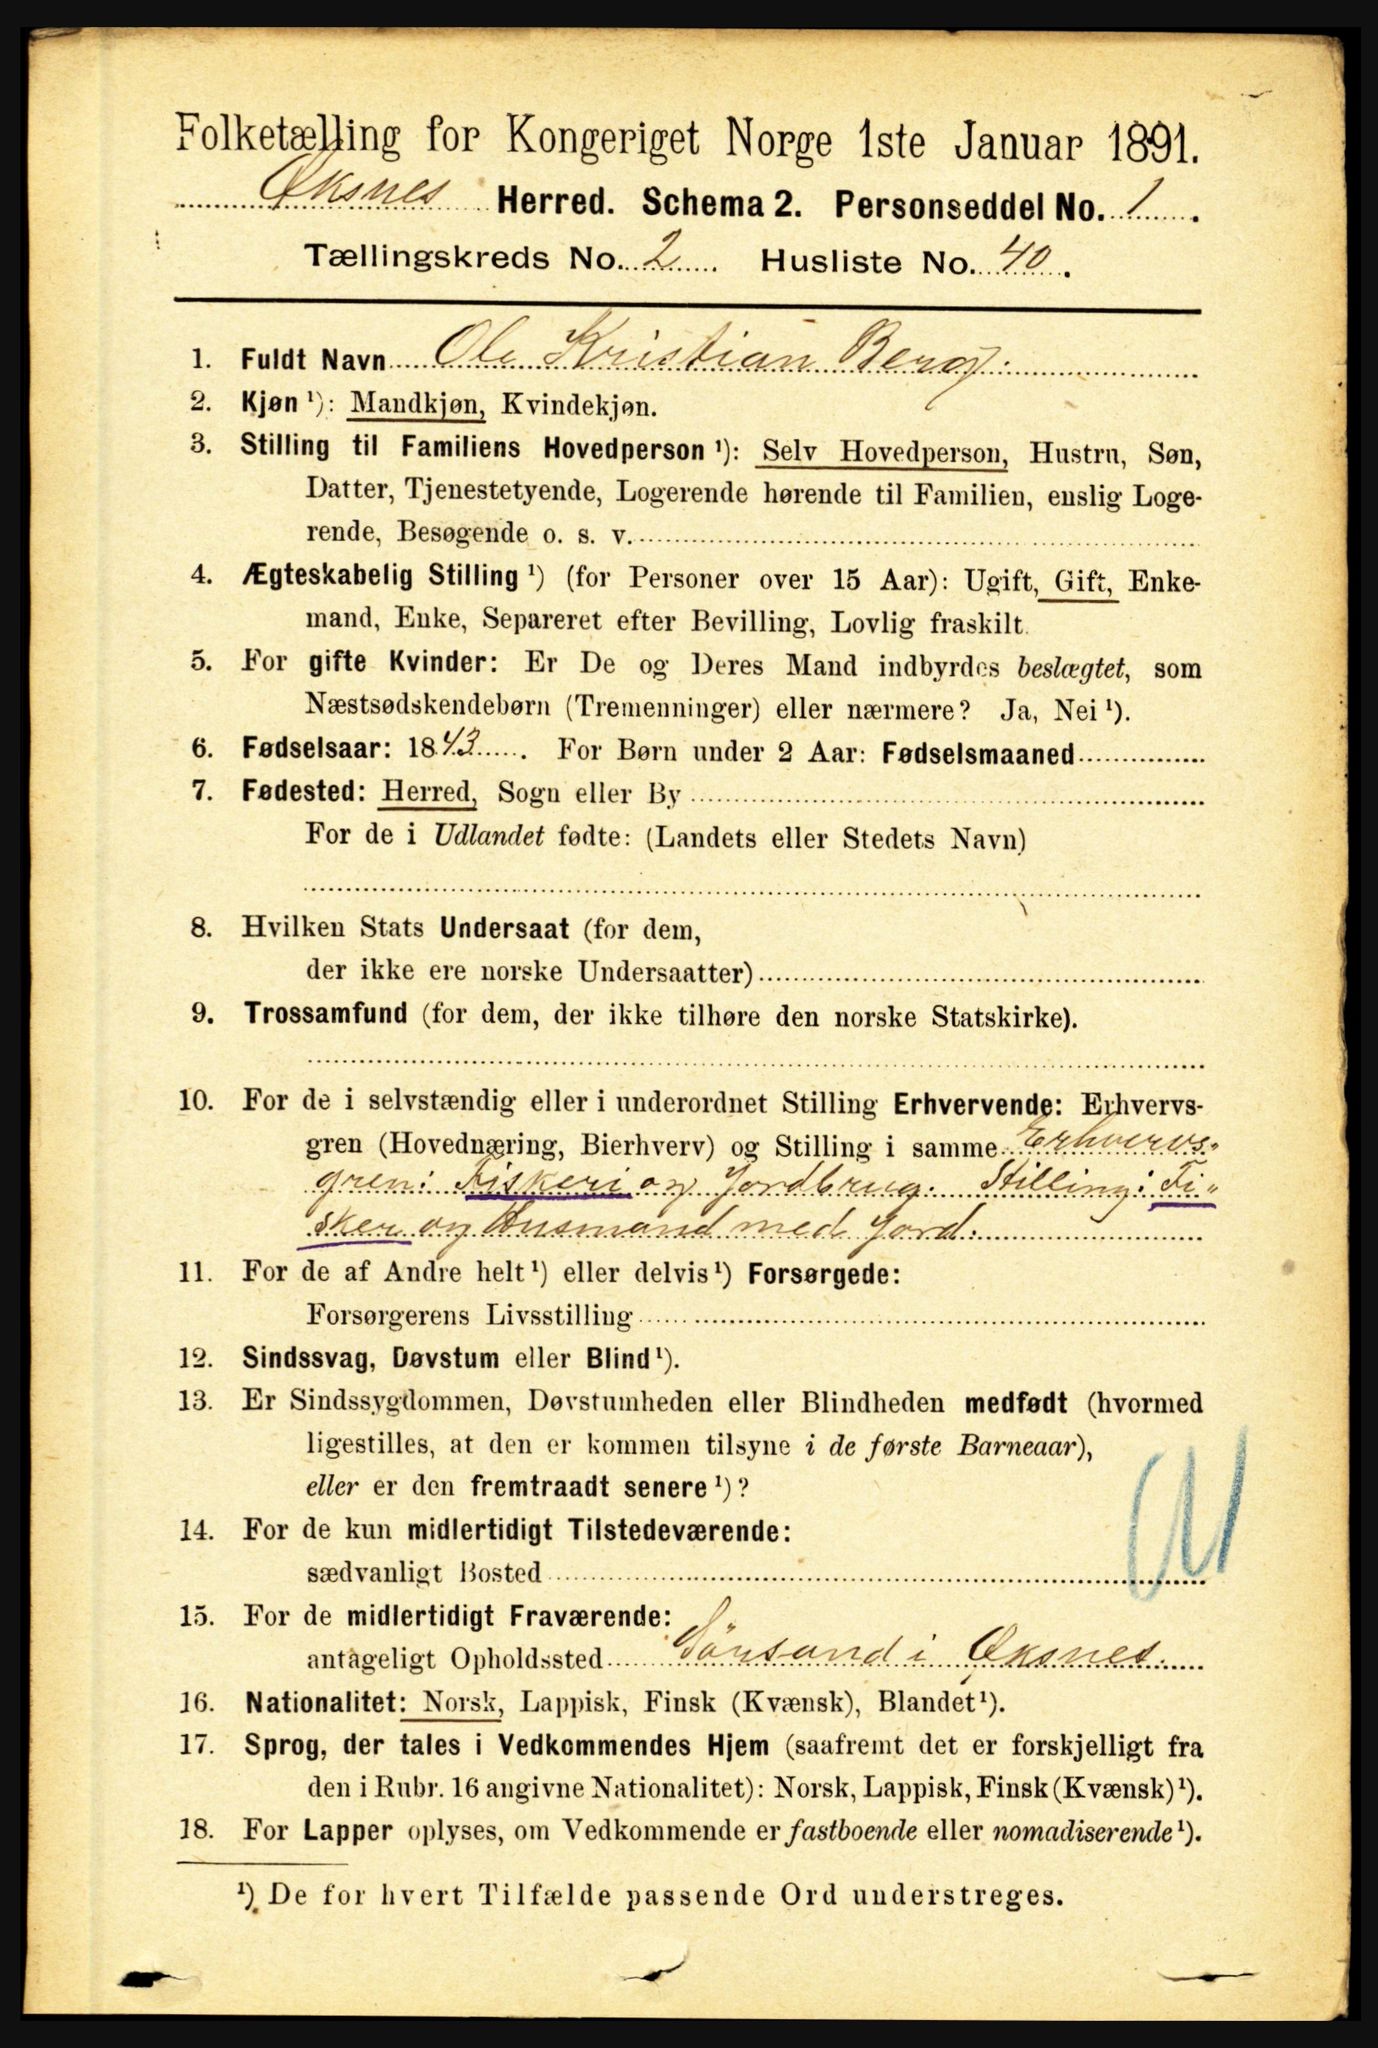 Folketælling for Kongeriget Norge 1ste Januar 1891.
Øksnes Herred. Schema 2. Personseddel No. 1.
Tællingskreds No. 2 Husliste No. 40.
1. Fuldt Navn Ole Kristian Berg.
2. Kjøn ¹): Mandkjøn, Kvindekjøn.
3. Stilling til Familiens Hovedperson ¹): Selv Hovedperson, Hustru, Søn,
Datter, Tjenestetyende, Logerende hørende til Familien, enslig Loge-
rende, Besøgende o. s. v.
4. Ægteskabelig Stilling ¹) (for Personer over 15 Aar): Ugift, Gift, Enke-
mand, Enke, Separeret efter Bevilling, Lovlig fraskilt.
5. For gifte Kvinder: Er De og Deres Mand indbyrdes beslægtet, som
Næstsødskendebørn (Tremenninger) eller nærmere? Ja, Nei ¹).
6. Fødselsaar: 1843. For Børn under 2 Aar: Fødselsmaaned
7. Fødested: Herred, Sogn eller By
For de i Udlandet fødte: (Landets eller Stedets Navn)
8. Hvilken Stats Undersaat (for dem,
der ikke ere norske Undersaatter)
9. Trossamfund (for dem, der ikke tilhøre den norske Statskirke).
10. For de i selvstændig eller i underordnet Stilling Erhvervende: Erhvervs-
gren (Hovednæring, Bierhverv) og Stilling i samme Erhvervs-
gren: Fiskeri og Jordbrug. Stilling: Fi-
sker og Husmand med Jord.
11. For de af Andre helt ¹) eller delvis ¹) Forsørgede:
Forsørgerens Livsstilling
12. Sindssvag, Døvstum eller Blind ¹).
13. Er Sindssygdommen, Døvstumheden eller Blindheden medfødt (hvormed
ligestilles, at den er kommen tilsyne i de første Barneaar),
eller er den fremtraadt senere ¹)?
14. For de kun midlertidigt Tilstedeværende:
sædvanligt Bosted
15. For de midlertidigt Fraværende:
antageligt Opholdssted Sörsand i Øksnes.
16. Nationalitet: Norsk, Lappisk, Finsk (Kvænsk), Blandet ¹).
17. Sprog, der tales i Vedkommendes Hjem (saafremt det er forskjelligt fra
den i Rubr. 16 angivne Nationalitet): Norsk, Lappisk, Finsk (Kvænsk) ¹).
18. For Lapper oplyses, om Vedkommende er fastboende eller nomadiserende ¹).
¹) De for hvert Tilfælde passende Ord understreges.